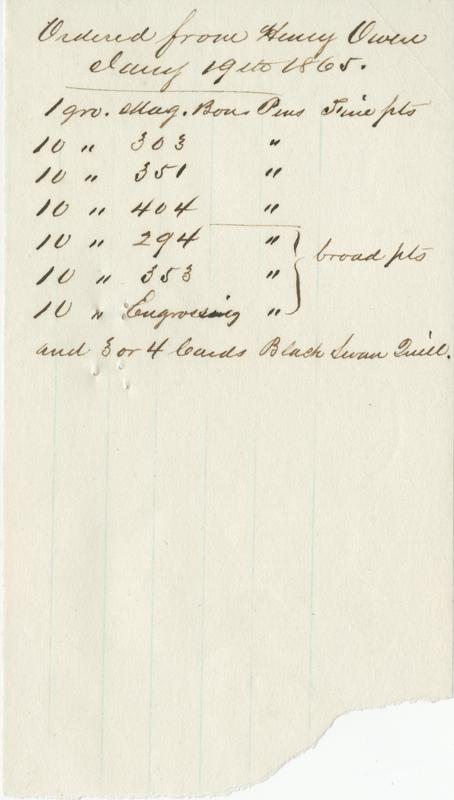 Ordered from Henry Owen
Jany 19th 1865.
1 gro. Mag. Bonu Pens Fine pts
10 " 303 "
10 " 351 "
10 " 404 "
10 " 294 "
10 " 353 " broad pts
10 " Engrossing "
and 3 or 4 Cards Black Swan Quill.